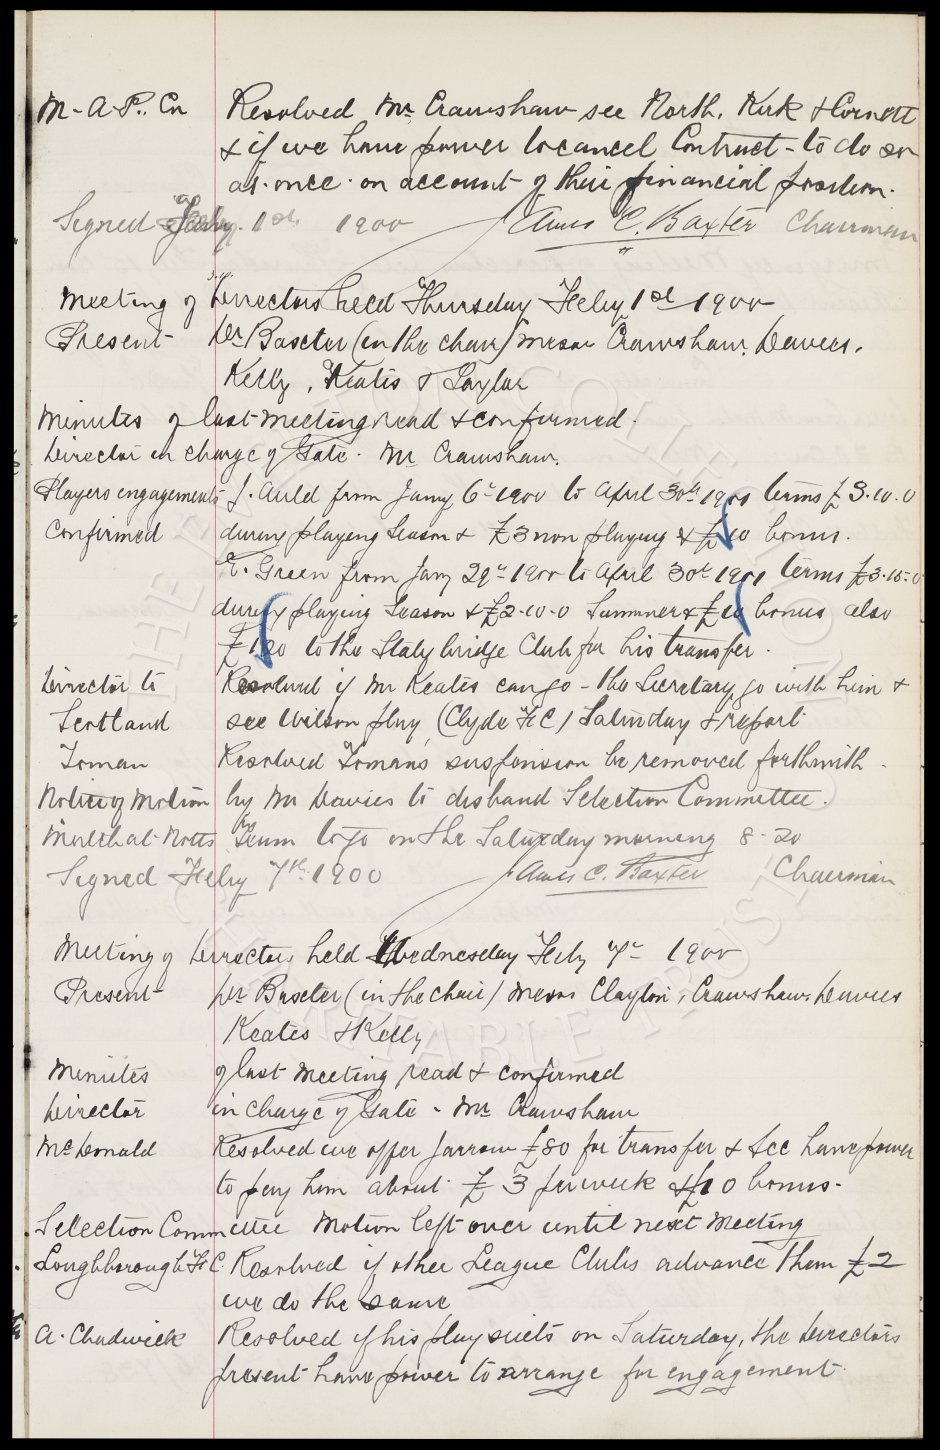 M-A-P. Co Resolved Mr Crawshaw see North, Kirk & Cornett
& if we have power to cancel Contract - to do so
at once on account of their financial position.
Signed Feby. 1st 1900 James C. Baxter Chairman
Meeting of Directors held Thursday Feby 1st 1900
Present Dr Baxter (in the chair) Messrs Crawshaw, Davies,
Kelly, Keates & Taylor
Minutes of last meeting read & confirmed.
Director in charge of Gate. Mr Crawshaw.
Players engagements J. Auld from Jany 6th 1900 to April 30th 1901 terms £3.10.0
Confirmed during playing Season & £3 non playing & £10 bonus.
E. Green from Jany 29th 1900 to April 30th 1901 terms £3.10.0
during playing Season & £2-10-0 Summer & £10 bonus also
£120 to the Stalybridge Club for his transfer.
Director to Resolved if Mr Keates can go - the Secretary go with him &
Scotland see Wilson play (Clyde F C) Saturday & report
Toman Resolved Tomans suspension be removed forthwith.
Notice of Motion by Mr Davies to disband Selection Committee.
Match at Notts The Team to go on the Saturday morning 8-20
Signed Feby 7th 1900 James C. Baxter Chairman
Meeting of Directors held Wednesday Feby 7th 1900
Present Dr Baxter (in the chair) Messrs Clayton, Crawshaw, Davies
Keates & Kelly
Minutes of last meeting read & confirmed
Director in charge of Gate - Mr Crawshaw
McDonald Resolved we offer Jarrow £80 for transfer & Sec have power
to pay him about £3 per week & £10 bonus.
Selection Committee Motion left over until next Meeting
Loughborough F C. Resolved if other League Clubs advance them £2
we do the same
A. Chadwick Resolved if his play suits on Saturday, the Directors
present have power to arrange for engagement.